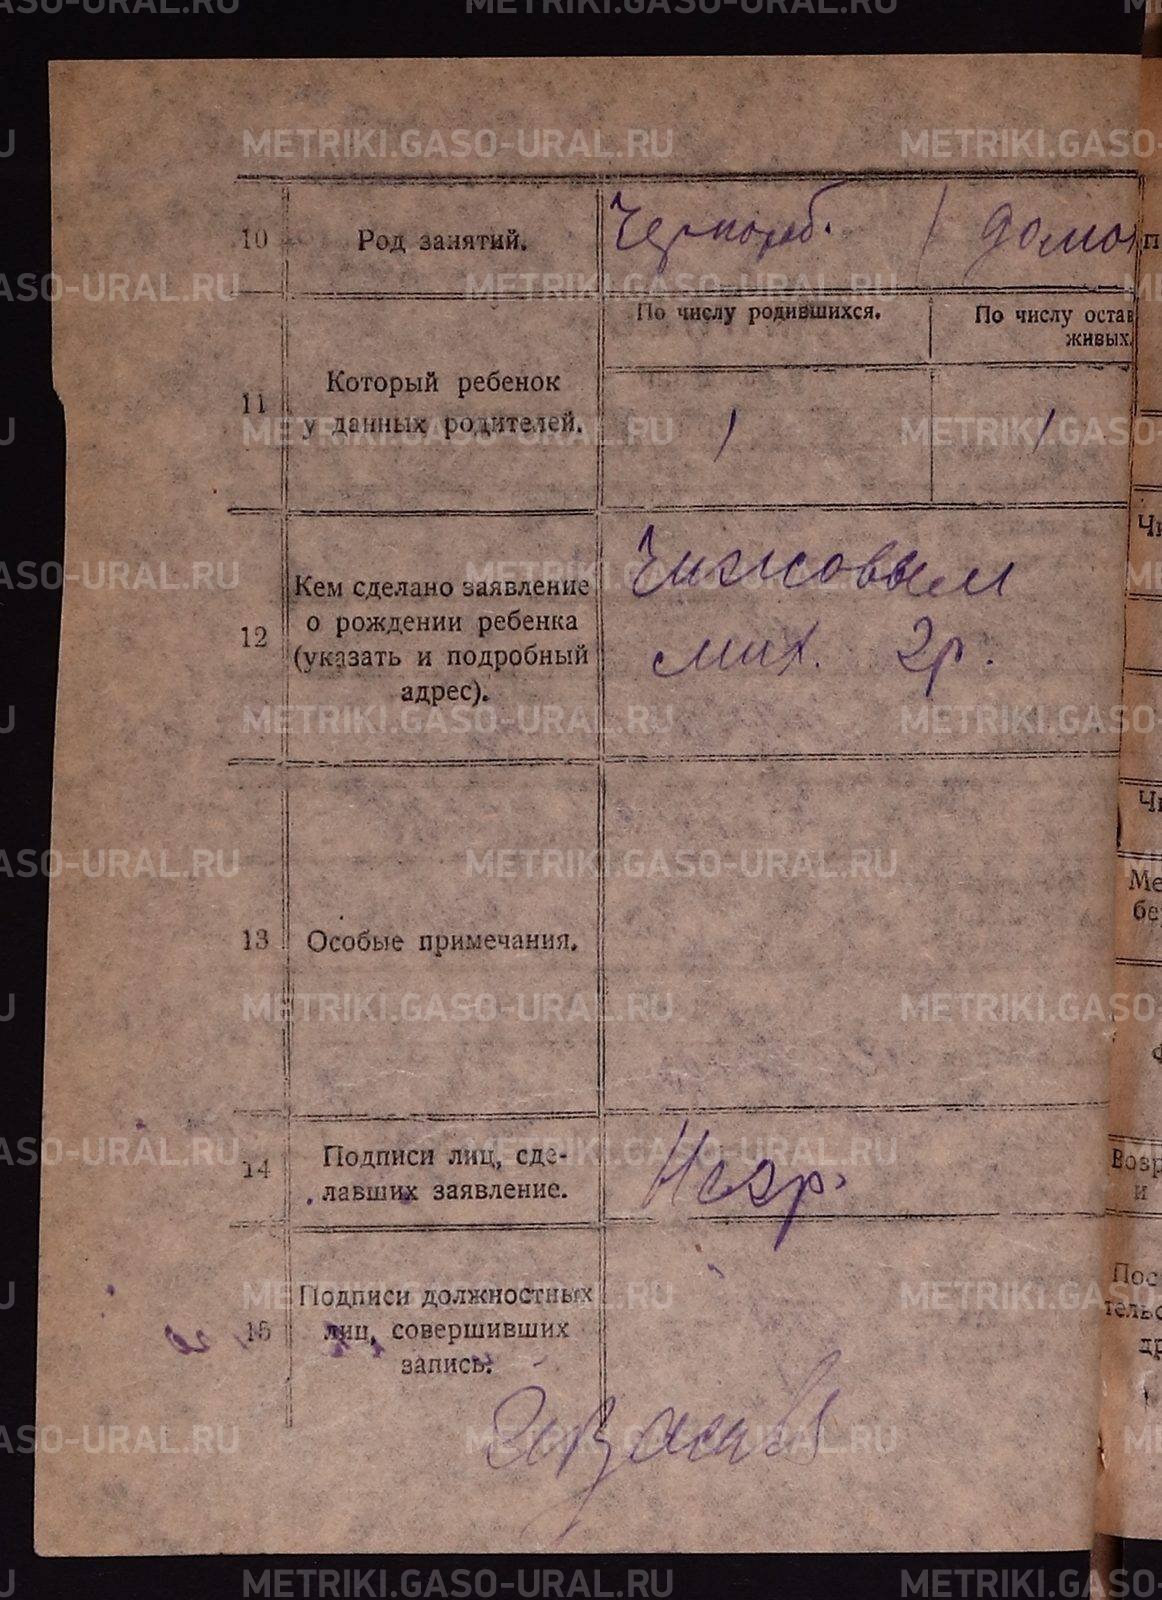 10 Род занятий. Чернораб. / домо
По числу родившихся. По числу остав
живых.
11 Который ребенок
у данных родителей. 1 1
12 Кем сделано заявление
о рождении ребенка
(указать и подробный
адрес).
Чижовым
мих. гр.
13 Особые примечания.
14 Подписи лиц, сде-
лавших заявление.
Негр.
15 Подписи должностных
лиц, совершивших
запись.
Чи
Чи
Ме
бе
Возр
и
Пос
тельс
др
METRIKI.GASO-URAL.RU